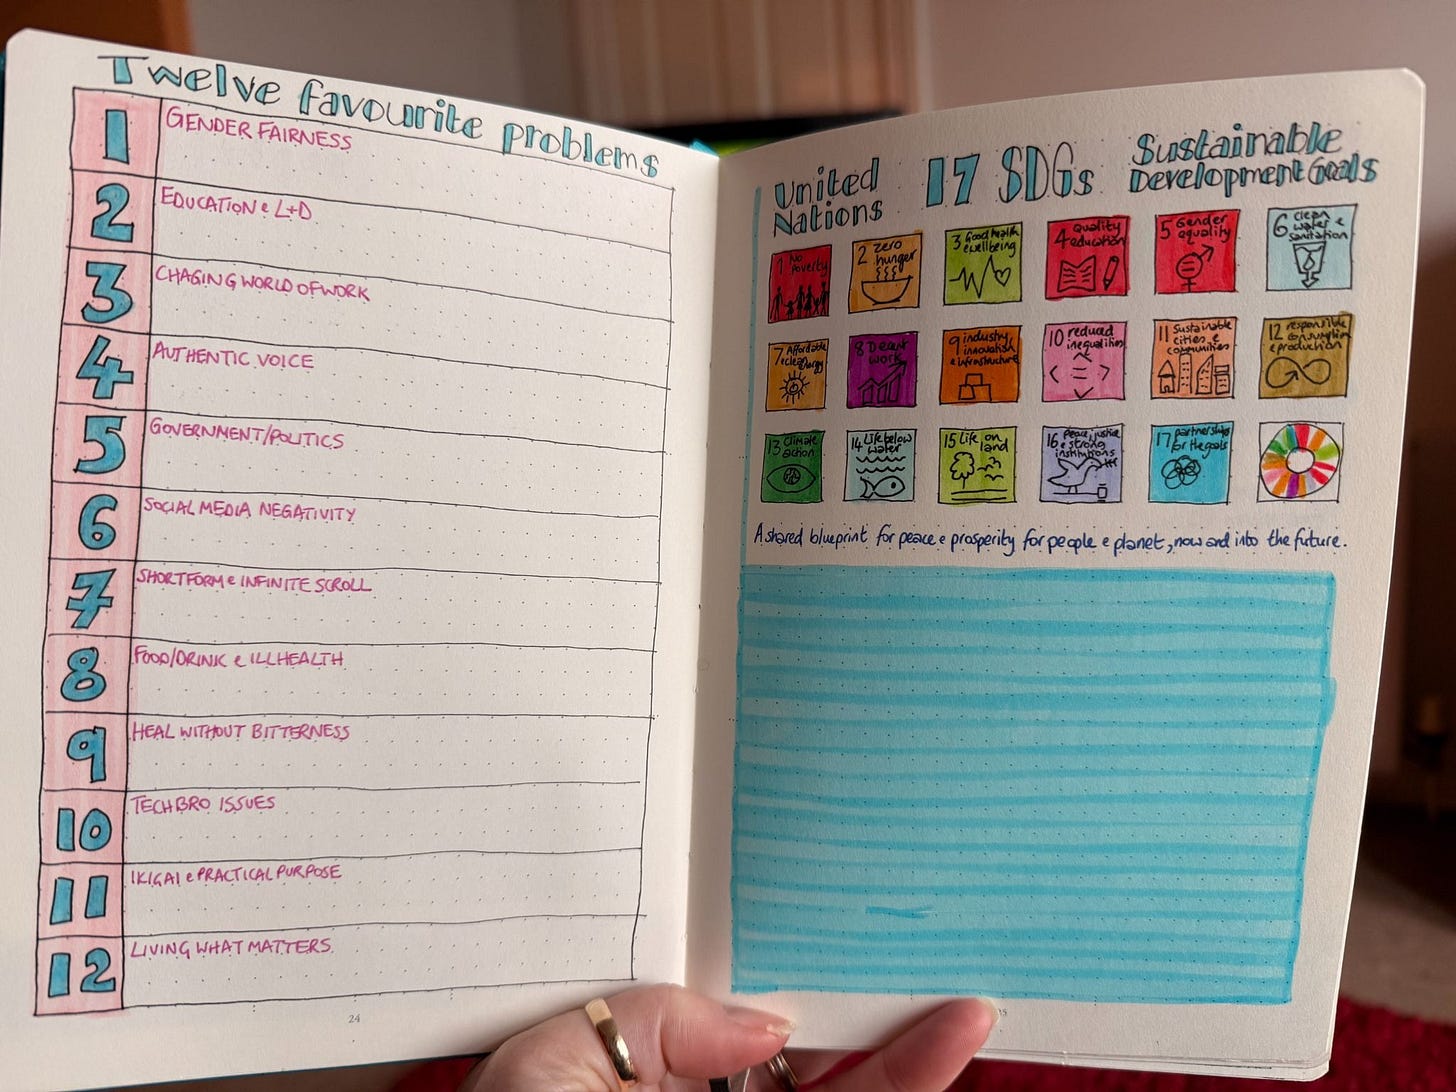 Twelve favourite problems
1 GENDER FAIRNESS
2 EDUCATION & L+D
3 CHAGING WORLD OF WORK
4 AUTHENTIC VOICE
5 GOVERNMENT/POLITICS
6 SOCIAL MEDIA NEGATIVITY
7 SHORTFORM & INFINITE SCROLL
8 FOOD/DRINK & ILLHEALTH
9 HEAL WITHOUT BITTERNESS
10 TECHBRO ISSUES
11 IKIGAI & PRACTICAL PURPOSE
12 LIVING WHAT MATTERS
24
United
Nations
17 SDGs
Sustainable
Development Goals
1 No
Poverty
2 zero
hunger
3 Good health
& wellbeing
4 quality
education
5 Gender
equality
6 clean
water &
sanitation
7 Affordable
& clean
energy
8 Decent
work
9 industry
innovation
& infrastructure
10 reduced
inequalities
11 Sustainable
cities &
communities
12 responsible
consumption
& production
13 climate
action
14 Life below
water
15 Life on
land
16 peace, justice
& strong
institutions
17 partnerships
for the goals
A shared blueprint for peace & prosperity for people & planet, now and into the future.